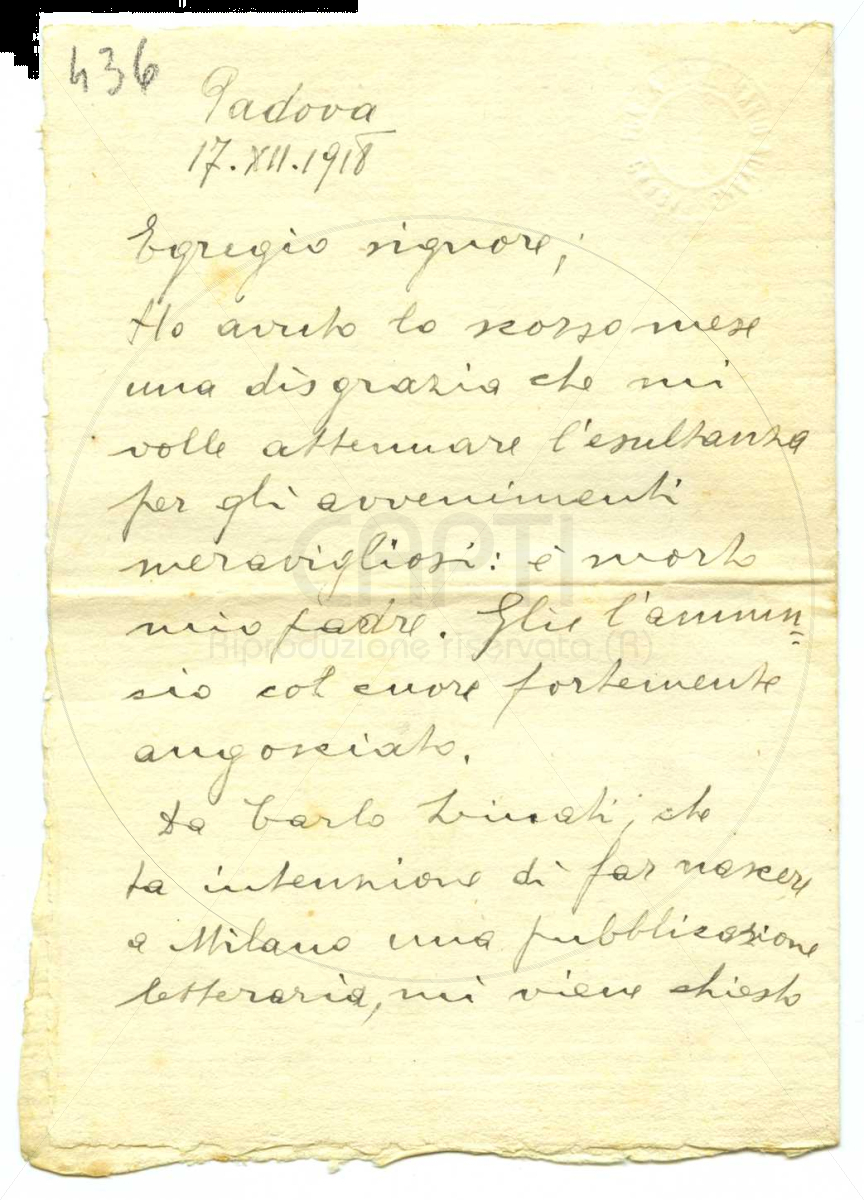 436
Padova
17.XII.1918
Egregio signore;
Ho avuto lo scorso mese
una disgrazia che mi
volle attenuare l'esultanza
per gli avvenimenti
meravigliosi: è morto
mio padre. Glie l'annun=
cio col cuore fortemente
angosciato.
Da Carlo Linati, che
ha intenzione di far nascere
a Milano una pubblicazione
letteraria, mi viene chiesto
CAPTI
Riproduzione riservata (R)